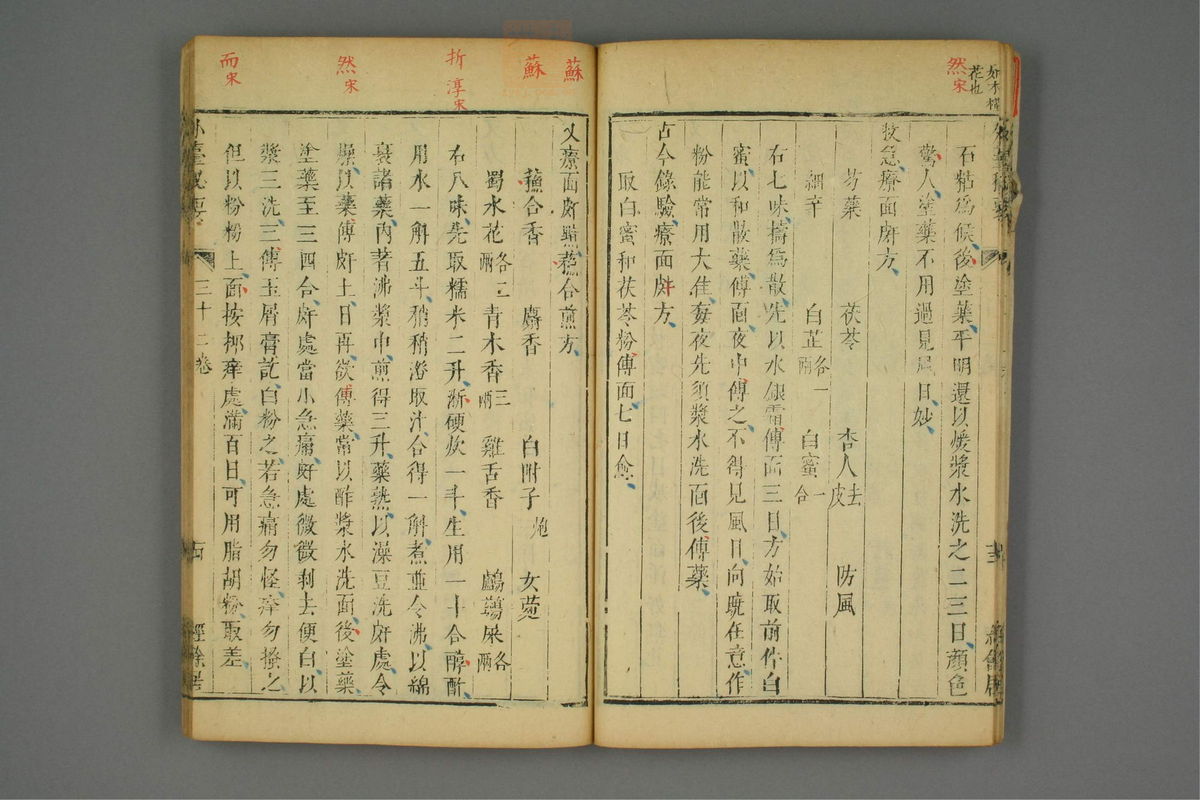 如木槿
花也
然宋
石粘為候後塗藥平明還以煖漿水洗之二三日顔色
驚人塗藥不用過見風日妙
救急療面皯方
芍藥 茯苓 杏人去皮 防風
細辛 白芷各一兩 白蜜一合
右七味擣為散先以水銀霜傅面三日方始取前件白
蜜以和散藥傅面夜中傅之不得見風日向曉任意作
粉能常用大佳每夜先須漿水洗面後傅藥
古今錄驗療面皯方
取白蜜和茯苓粉傅面七日愈
蘇
蘇
折 淳宋
然宋
而宋
又療面皯䵟蘓合煎方
蘓合香 麝香 白附子炮 女菀
蜀水花各二兩 青木香三兩 雞舌香 鸕鷀屎各兩
右八味先取糯米二升淅硬炊一斗生用一十合醇酢
用水一斛五斗稍稍澇取汁合得一斛煮並令沸以綿
裹諸藥內著沸漿中煎得三升藥熟以澡豆洗皯處令
燥以藥傅皯上日再欲傅藥常以酢漿水洗面後塗藥
塗藥至三四合皯處當小急痛皯處微微剥去便白以
漿三洗三傅玉屑膏訖白粉之若急痛勿怪痒勿搔之
但以粉粉上面按抑痒處滿百日可用脂胡粉取差
外臺秘要 三十二卷 經餘居